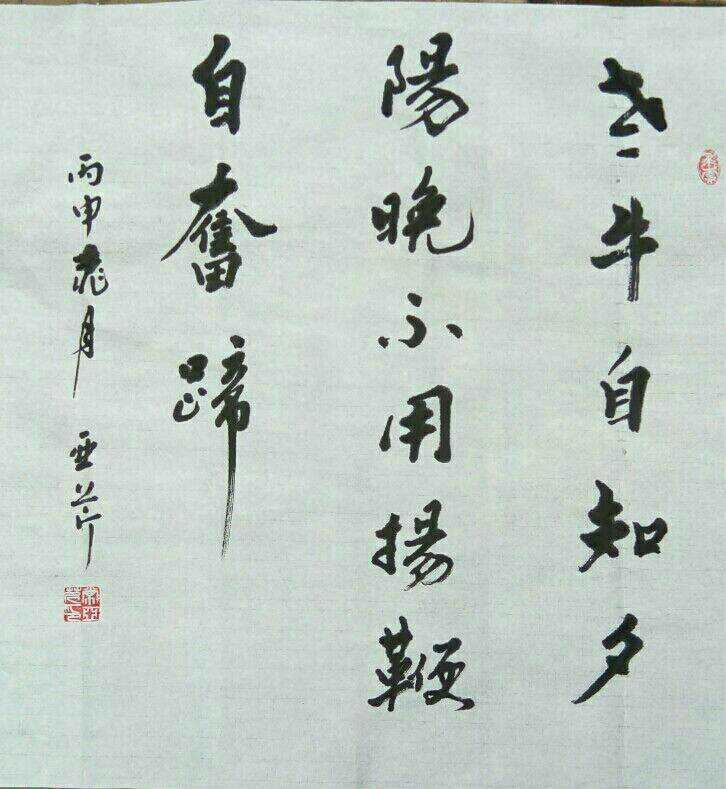 老牛自知夕
陽晚不用揚鞭
自奮蹄
丙申桃月 亚芹